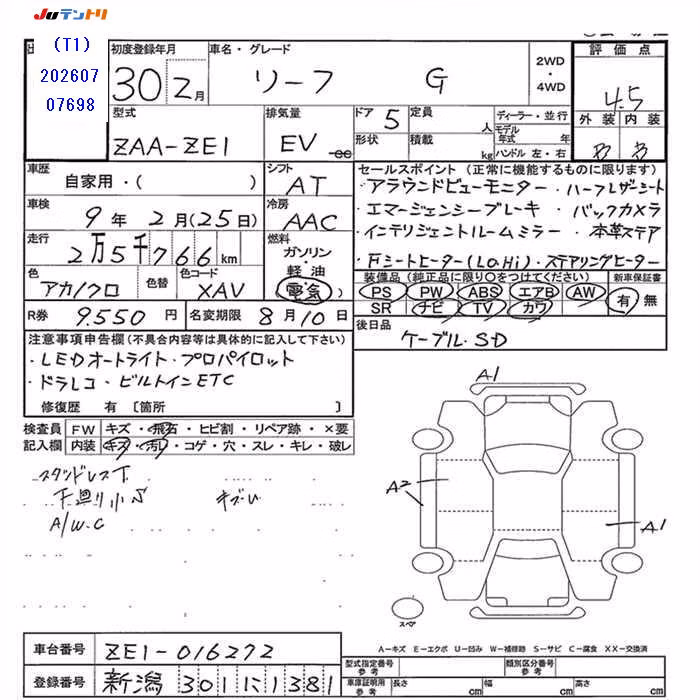 JUテントリ
(T1)
202607
07698
初度登録年月
30 2月
車名・グレード
リーフ G
2WD
・
4WD
評価点
4.5
外装 内装
B B
型式
ZAA-ZE1
排気量
EV
ドア 5
形状
定員 人
積載 kg
ディーラー・並行
モデル年式 年
ハンドル 左・右
車歴
自家用・( )
シフト
AT
車検
9年 2月(25日)
冷房
AAC
走行
2万5千766km
燃料
ガソリン
・
軽油
電気
色
アカ/クロ
色替
色コード
XAV
セールスポイント (正常に機能するものに限ります)
・アラウンドビューモニター・ハーフレザーシート
・エマージェンシーブレーキ ・バックカメラ
・インテリジェントルームミラー・本革ステア
・Fシートヒーター(Lo,Hi)・ステアリングヒーター
装備品 (純正品に限り○をつけてください)
PS PW ABS エアB AW
SR ナビ TV カワ
新車保証書
有 無
R券 9.550円
名変期限 8月10日
後日品
ケーブル・SD
注意事項申告欄(不具合内容等は具体的に記入して下さい)
・LEDオートライト・プロパイロット
・ドラレコ・ビルトインETC
修復歴 有〔箇所 〕
検査員 FW キズ・飛石・ヒビ割・リペア跡・×要
記入欄 内装 キズ・汚レ・コゲ・穴・スレ・キレ・破レ
スタッドレスT
下廻り小S キズU
A/W.C
A1
A2
A1
スペア
A−キズ E−エクボ U−凹み W−補修跡 S−サビ C−腐食 XX−交換済
車台番号 ZE1-016272
登録番号 新潟 301 に 1381
型式指定番号
参考
類別区分番号
参考
車庫証明用
参考
長さ cm
幅 cm
高さ cm